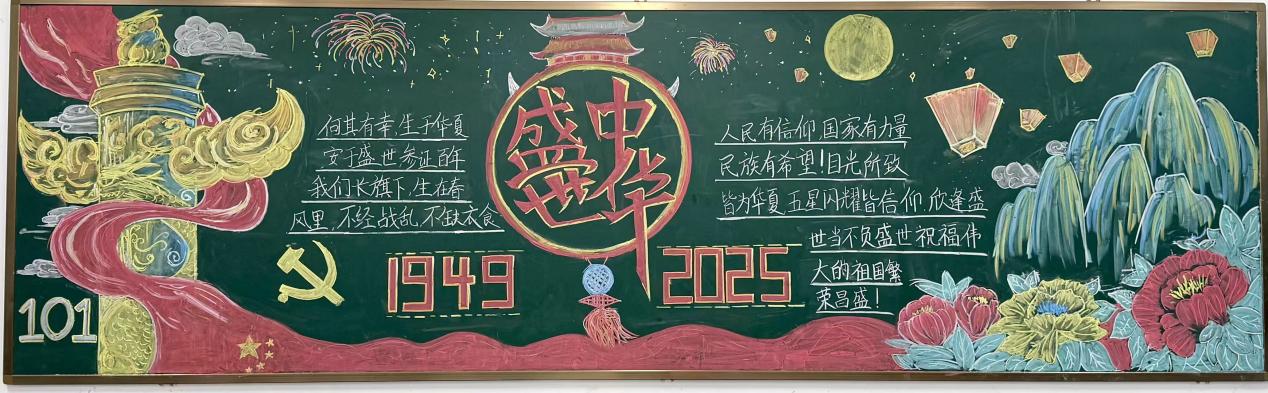 盛世中华
何其有幸,生于华夏
安于盛世参证百年
我们长旗下,生在春
风里,不经战乱,不缺衣食
人民有信仰,国家有力量
民族有希望!目光所致
皆为华夏,五星闪耀皆信仰,欣逢盛
世当不负盛世祝福伟
大的祖国繁
荣昌盛!
1949
2025
101